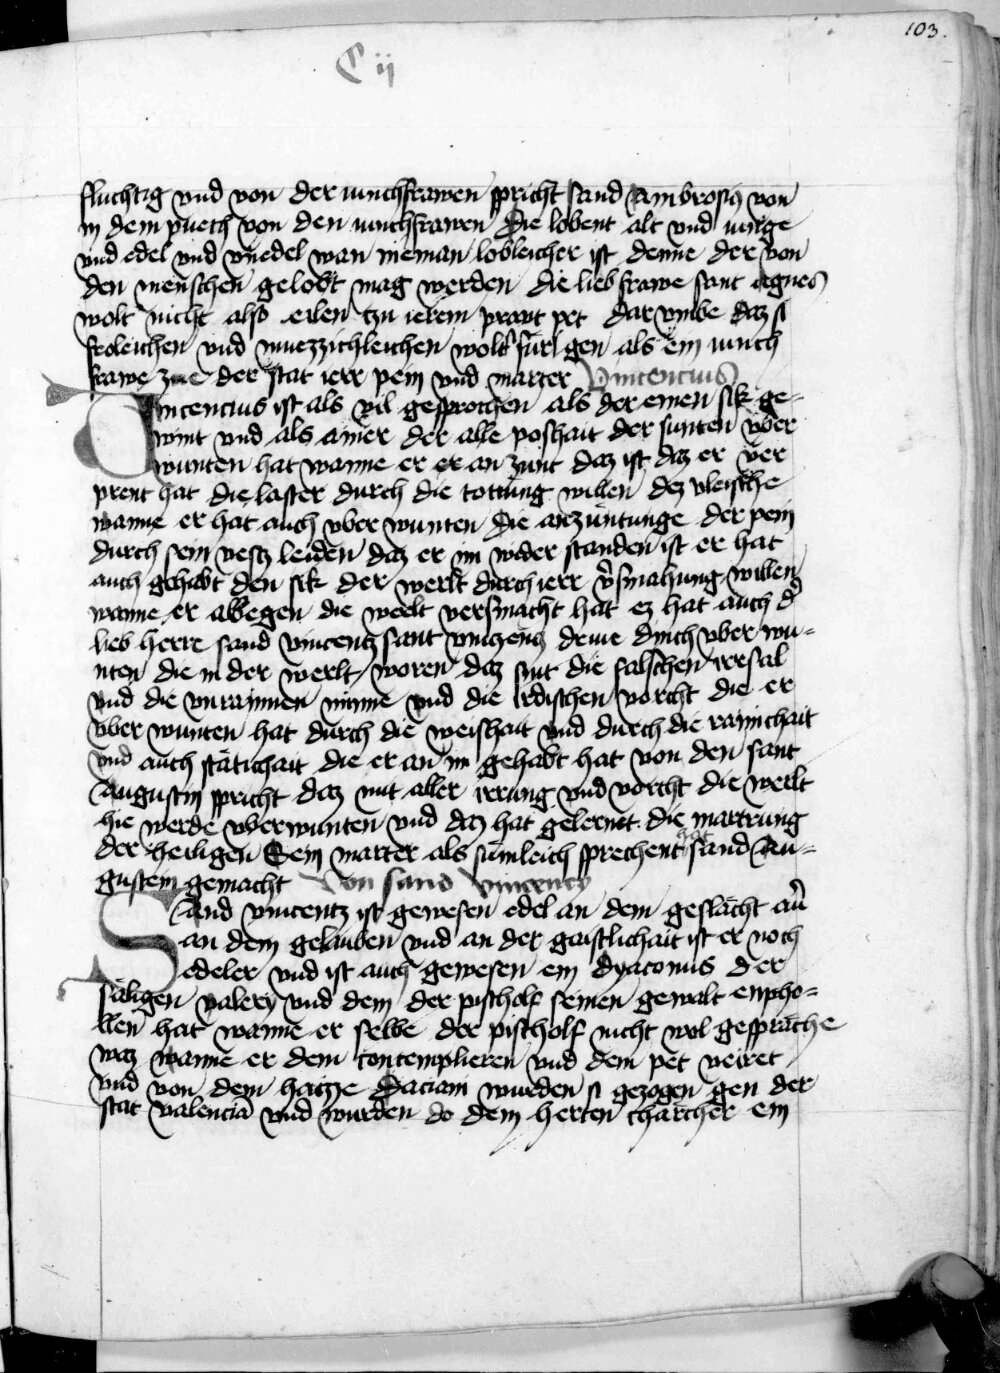 103.
C ij
fluchtig vnd von der iunchfrawen spricht sand Ambrosy von
in dem puech von den iunchfrawen Die lobent alt vnd iunge
vnd edel vnd vnedel wan nieman lobleicher ist denne der von
den menschen gelobt mag werden die lieb frawe sant agnes
wolt nicht also eilen tzu ierem praut pet dar vmbe daz si
froleichen vnd muezzichleichen wolt fur gen als ein iunch
frawe zue der stat ierr pein vnd marter Vincencius
Vincencius ist als vil gesprochen als der einen sik ge-
wint vnd als ainer der alle poshait der sunten vber
wunten hat wanne er er an zunt daz ist daz er ver
prent hat die laster durch die tottung willen dez vleische
wanne er hat auch vber wunten die anzuntunge der pein
durch sein vestz leiden daz er im wider standen ist er hat
auch gehabt den sik der werlt durch ierr v̉smahung willen
wanne er allbegen die werlt versmacht hat ez hat auch d̉
lieb herre sand vincentz sant vinczencz deme dinch vber wu-
nten die in der werlt woren daz sint die falschen irrsal
vnd die vnrainnen minne vnd die irdischen vorcht die er
vber wunten hat durch die weishait vnd durch die rainichait
vnd auch statichait die er an im gehabt hat von den sant
Augustin spricht daz mit aller irrung vnd vorcht die werlt
hie werde vberwunten vnd daz hat gelernet die martrung
der heiligen Sein marter als sumleich sprechent hat sand Au-
gustein gemacht Von sand vincency
Sand vincentz ist gewesen edel an dem geslacht au̓
an dem gelauben vnd an der gaistlichait ist er noch
edeler vnd ist auch gewesen ein dyaconus der
saligen valery vnd dem der pischolf seinen gewalt enpho-
llen hat wanne er selbe der pischolf nicht wol gesprache
waz wanne er dem contemplieren vnd dem pet veiret
vnd von dem haizze Daciani wurden si gezogen gen der
stat valencia vnd wurden do dem herten charcher ein